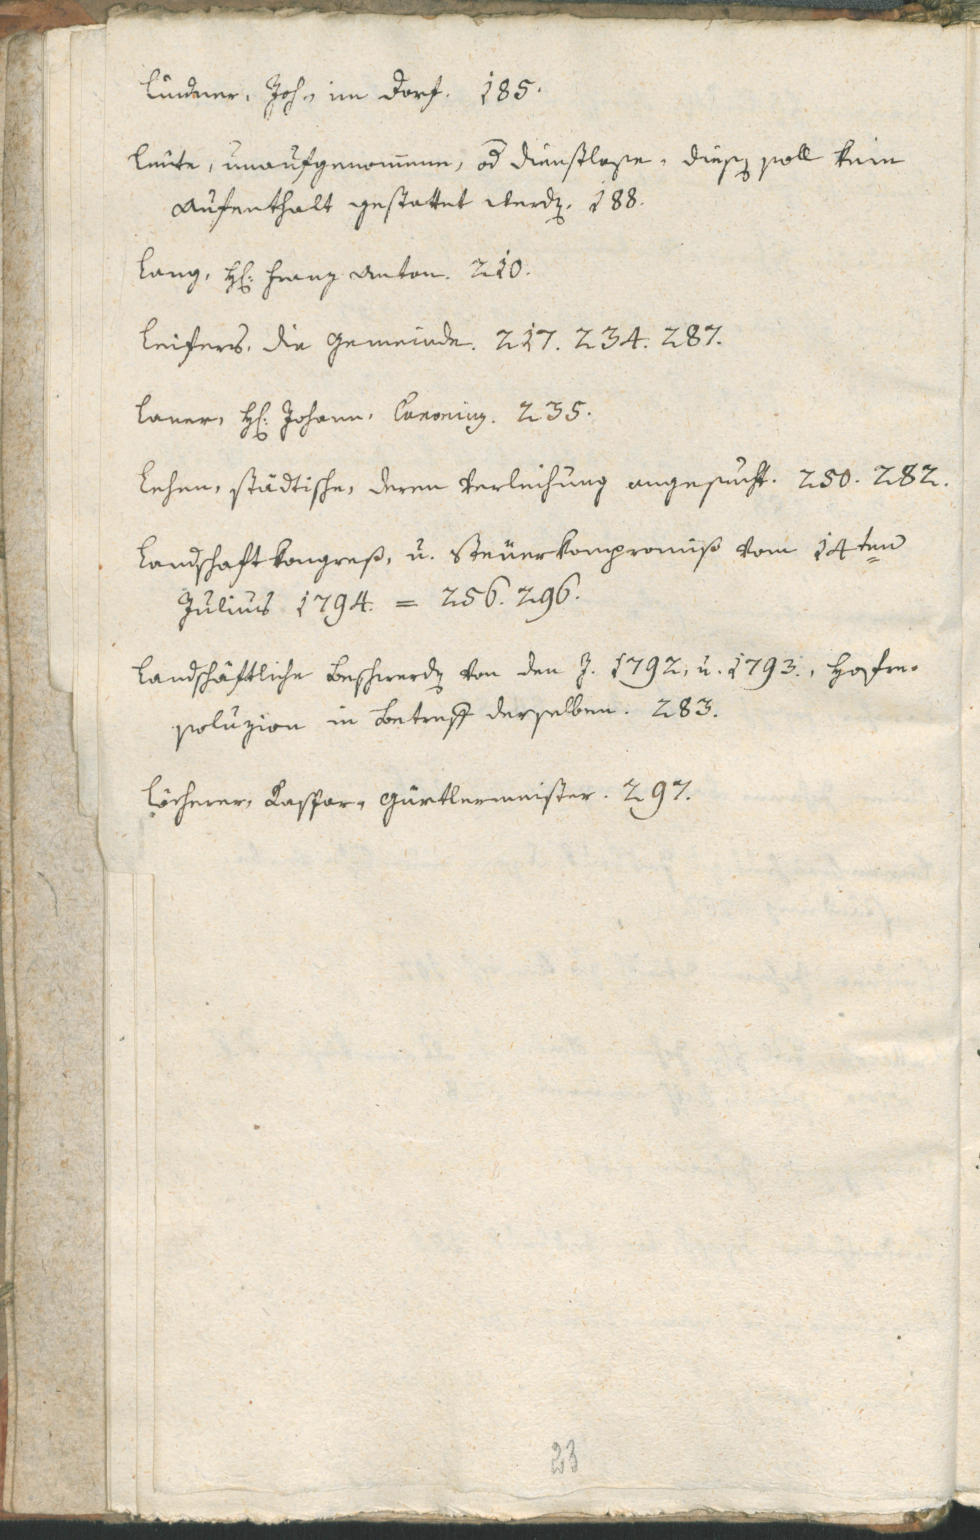 Lindner, Joh., im Dorf. 185.
Leute, unaufgenommene, od dienstlose, diesen soll kein
Aufenthalt gestattet werden. 188.
Lang, H: Franz Anton. 210.
Leifers, die Gemeinde. 217. 234. 287.
Laner, H: Johann, Canonicus. 235.
Lehen, städtische, deren Verleihung angesucht. 250. 282.
Landschaftkongreß, u. Steuerkompromiß vom 14ten
Julius 1794. = 256. 296.
Landschäftliche Beschwerden von den J. 1792, u. 1793., Hofre-
soluzion in Betreff derselben. 283.
Löcherer, Kaspar, Gürtlermeister. 297.
23